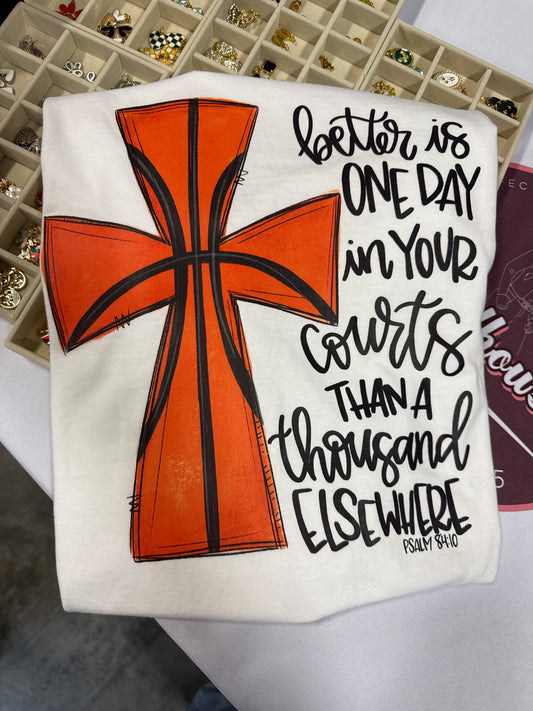 better is
ONE DAY
in YOUR
courts
THAN A
thousand
ELSEWHERE
PSALM 84:10